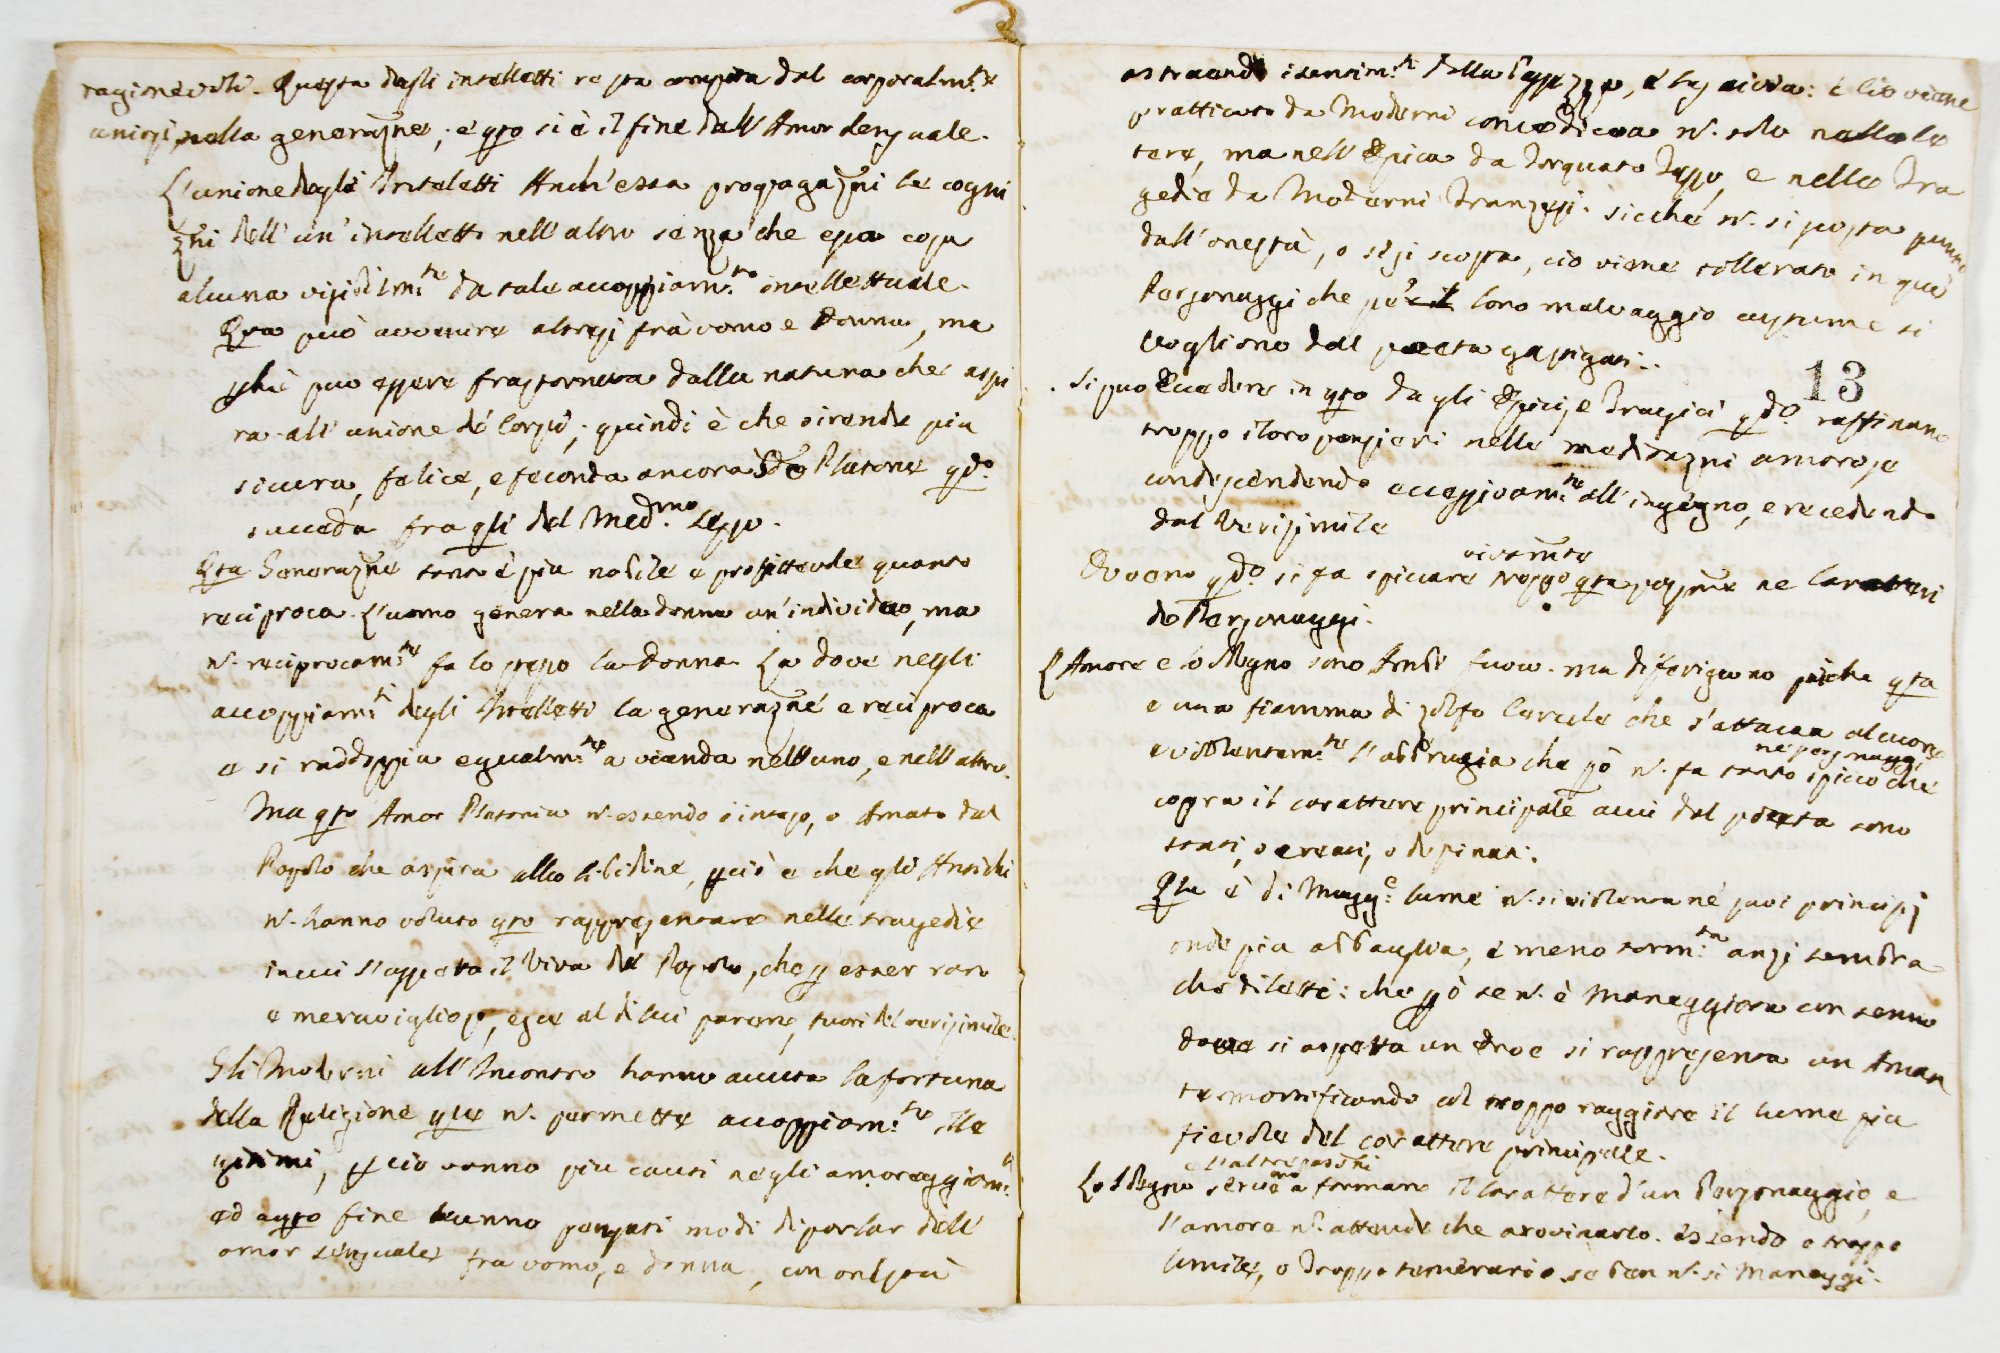 ragionevoli. Questa degli intelletti resta compita dal corporalm.te
unirsi nella generaz̄ne; e q̄sto si è il fine dell'Amor sensuale.
L'unione degli Inteletti Anch'essa propagaz̄ni le cogni
z̄ni dell'un'intelletto nell'altro senza che esca cosa
alcuna visibilm.te da tale accoppiam.to intellettuale.
Q̄sta può avvenire altresi frà uomo e Donna, ma
p̄chè puo essere frastornata dalla natura che aspi
ra all'unione de Corpi; quindi è che si rende piu
sicura, felice, e feconda ancora Platone q̄do
succeda fra q̄lli del Med.mo sesso.
Q̄sta Generaz̄ne tanto è piu nobile e profittevole quanto
reciproca. L'uomo genera nella donna un'individuo, ma
n. reciprocam.te fa lo stesso la Donna. La dove negli
accoppiam.ti degli Intelletti la generaz̄ne è reciproca
e si raddoppia egualm.te a vicenda nell'uno, e nell'altro.
Ma q̄sto Amor Platonico n. essendo o inteso, o Amato dal
Popolo che aspira alla libidine, p̄ciò e che gli Antichi
n. hanno voluto q̄sto rappresentare nelle tragedie
in cui s'aspetta il Viva del Popolo, che p̄ esser raro
e meraviglioso, esce al di lui parere, fuori del verisimile.
Gli Moderni all'Incontro hanno avuta la fortuna
della Religione q̄le n. permette accoppiam.te ille
gitimi, p̄ ciò vanno piu cauti negli amoreggiam.ti
ed a q̄sto fine hanno pensati modi di parlar dell'
amor sensuale fra uomo, e donna, con onestà
astraendo i sentim.ti dalla : e Ciò viene
pratticato da Moderni n. solo nelle
ma nell'Epica da Torquato Tasso, e nelle Tra
gedie da Moderni Franzesi. sicchè n. si scosta punto
dall'onestà, o se si scosta, ciò viene tollerato in que'
Personaggi che p̄ il loro malvaggio costume si
vogliono dal poeta gastigati.
13
Si può Eccedere in q̄sto dagli Epici, e Tragici q̄do raffinano
troppo i loro pensieri nelle meditaz̄ni amorose
condescendendo eccessivam.te all'ingegno, e recedendo
dal Verisimile
vivam̄te
Ovvero q̄do si fa spiccare troppo q̄sta passione ne Caratteri
de Personaggi.
L'Amore e lo Sdegno sono Ambi fuoco. ma differiscono q̄sta
e una fiamma di zolfo che s'attacca al cuore
ne personaggi
e violentem.te l'abbrugia che p̄ò n. fa tanto spicco che
copra il carattere principale a cui dal poeta sono
, o creati, o destinati.
Q̄lla è di Magg.e lume n. si violenta nè suoi principj
onde più abbaglia, e meno torm.ta anzi sembra
che diletti: che p̄ò se n. è Maneggiata con senno
dove si aspetta un Eroe si rappresenta un Aman
te mortificando col troppo raggiare il lume piu
fievole del carattere principale.
e l'altre pass̄ni
Lo sdegno servono a formare il Carattere d'un Personaggio, e
l'amore n. attende che a rovinarlo. essendo o troppo
umile, o Troppo temerario se ben n. si Maneggi.